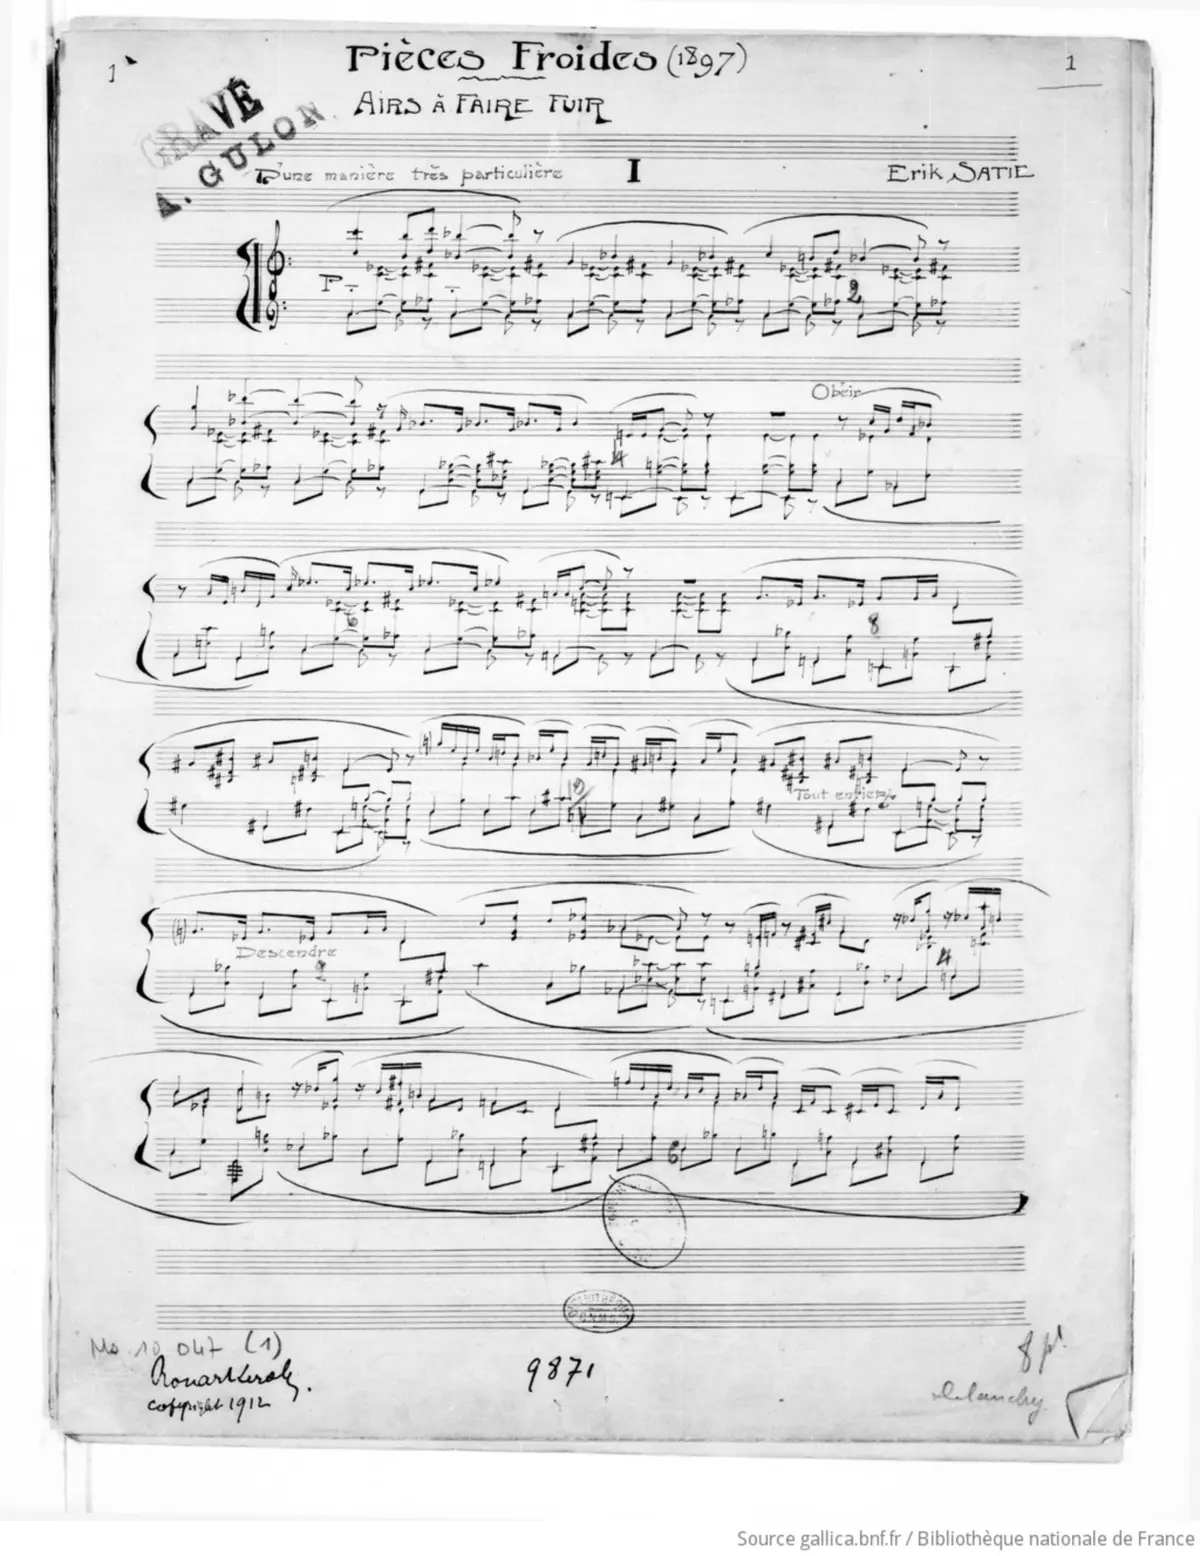 1
Pièces Froides (1897)
1
Airs à Faire Fuir
GRAVÉ
A. GULON
D'une manière très particulière
I
Erik Satie
P.
2
Obéir
4
6
8
Tout entier
Descendre
2
4
6
Ms 10 047 (1)
Rouart Lerolle.
copyright 1912
9871
8 pl
Delanchy
Source gallica.bnf.fr / Bibliothèque nationale de France